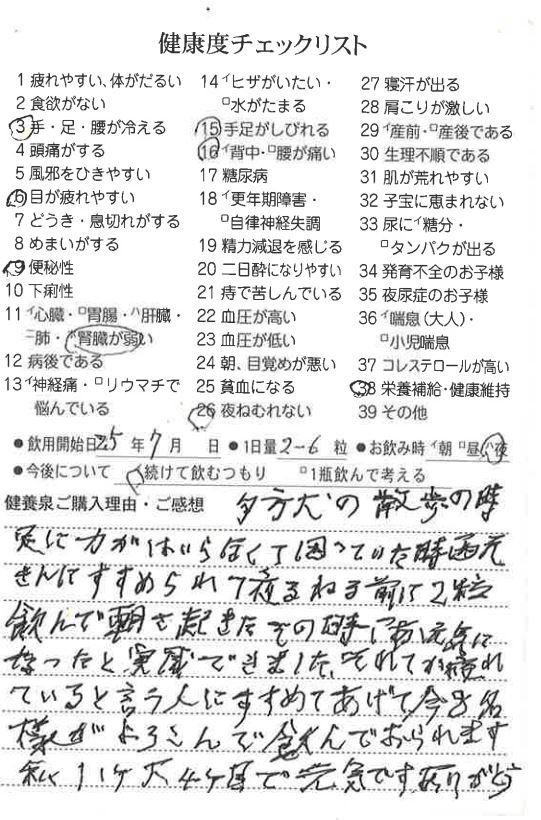 健康度チェックリスト
1 疲れやすい、体がだるい
2 食欲がない
3 手・足・腰が冷える
4 頭痛がする
5 風邪をひきやすい
6 目が疲れやすい
7 どうき・息切れがする
8 めまいがする
9 便秘性
10 下痢性
11 イ心臓・ロ胃腸・ハ肝臓・
ニ肺・ホ腎臓が弱い
12 病後である
13 イ神経痛・ロリウマチで
悩んでいる
14 イヒザがいたい・
ロ水がたまる
15 手足がしびれる
16 イ背中・ロ腰が痛い
17 糖尿病
18 イ更年期障害・
ロ自律神経失調
19 精力減退を感じる
20 二日酔になりやすい
21 痔で苦しんでいる
22 血圧が高い
23 血圧が低い
24 朝、目覚めが悪い
25 貧血になる
26 夜ねむれない
27 寝汗が出る
28 肩こりが激しい
29 イ産前・ロ産後である
30 生理不順である
31 肌が荒れやすい
32 子宝に恵まれない
33 尿にイ糖分・
ロタンパクが出る
34 発育不全のお子様
35 夜尿症のお子様
36 イ喘息(大人)・
ロ小児喘息
37 コレステロールが高い
38 栄養補給・健康維持
39 その他
●飲用開始日 25 年 7 月 日 ●1日量 2-6 粒 ●お飲み時 イ朝 ロ昼 ハ夜
●今後について イ続けて飲むつもり ロ1瓶飲んで考える
健養泉ご購入理由・ご感想 夕方犬の散歩の時
足に力がはいらなくて困っていた時
さんにすすめられて夜ねる前に2粒
飲んで朝さ起きたその時にお元気に
なったと実感できました。それでか疲れ
ていると言う人にすすめてあげて今8名
様がよろこんで飲んでおられます
私 11ヶ犬4ヶ目で元気です有りがとう